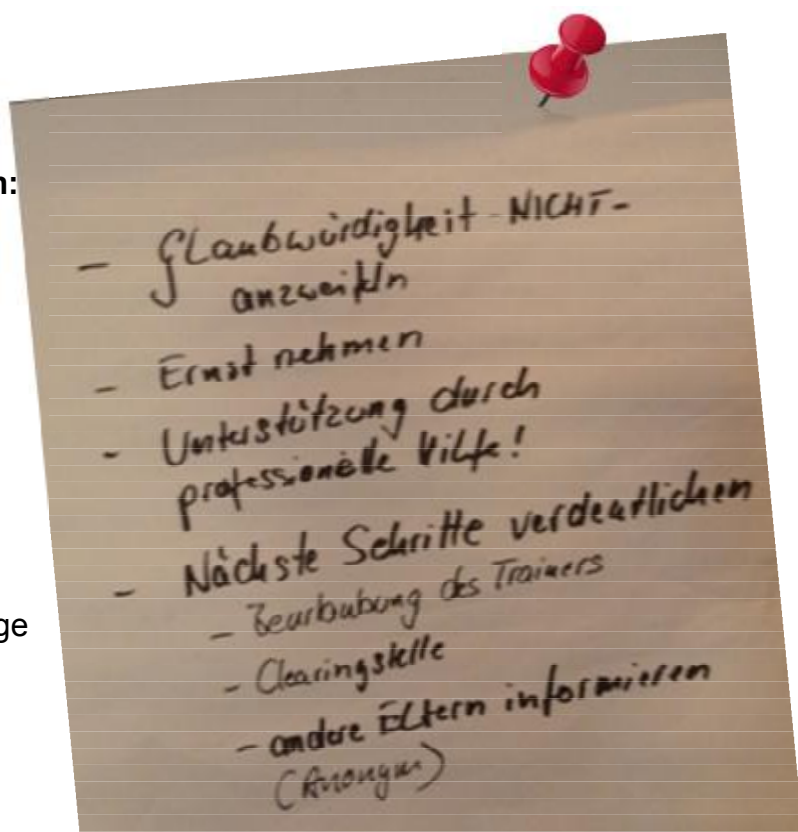 n:
- Glaubwürdigkeit NICHT-
anzweifeln
- Ernst nehmen
- Unterstützung durch
professionelle Hilfe!
- Nächste Schritte verdeutlichen
- Beurlaubung des Trainers
ge
- Clearingstelle
- andere Eltern informieren
(Anonym)